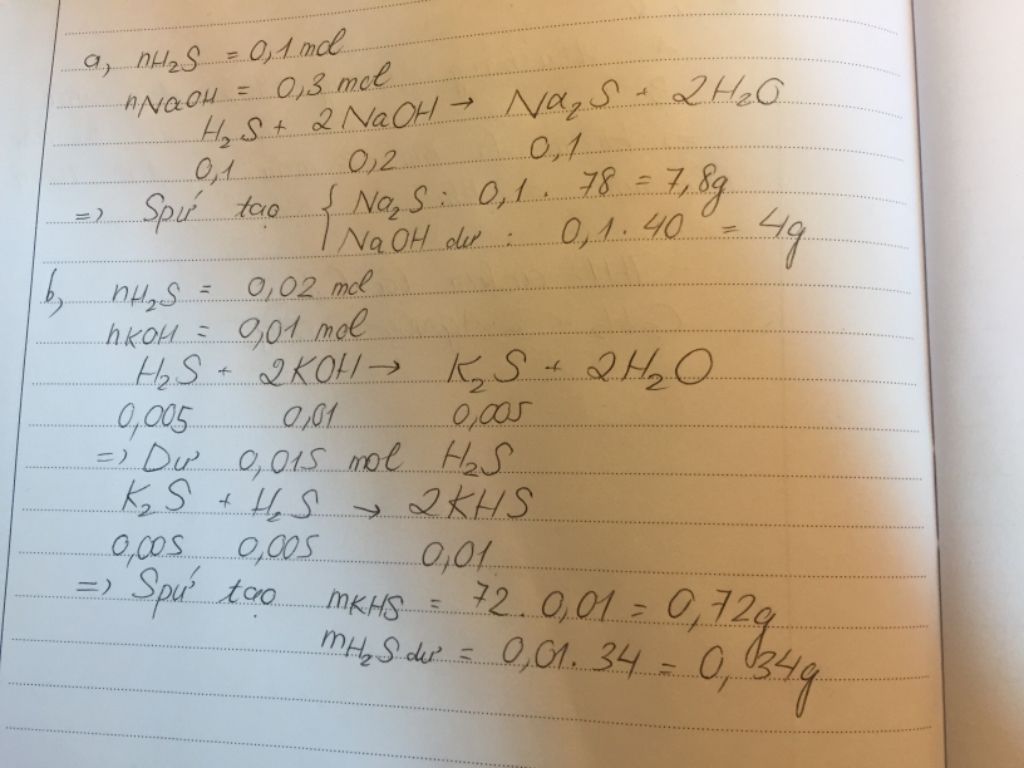 a, nH₂S = 0,1 mol
nNaOH = 0,3 mol
H₂S + 2NaOH → Na₂S + 2H₂O
0,1 0,2 0,1
=> Spứ tạo { Na₂S : 0,1 . 78 = 7,8g
NaOH dư : 0,1 . 40 = 4g
b, nH₂S = 0,02 mol
nKOH = 0,01 mol
H₂S + 2KOH → K₂S + 2H₂O
0,005 0,01 0,005
=> Dư 0,015 mol H₂S
K₂S + H₂S → 2KHS
0,005 0,005 0,01
=> Spứ tạo mKHS = 72 . 0,01 = 0,72g
mH₂S dư = 0,01 . 34 = 0,34g